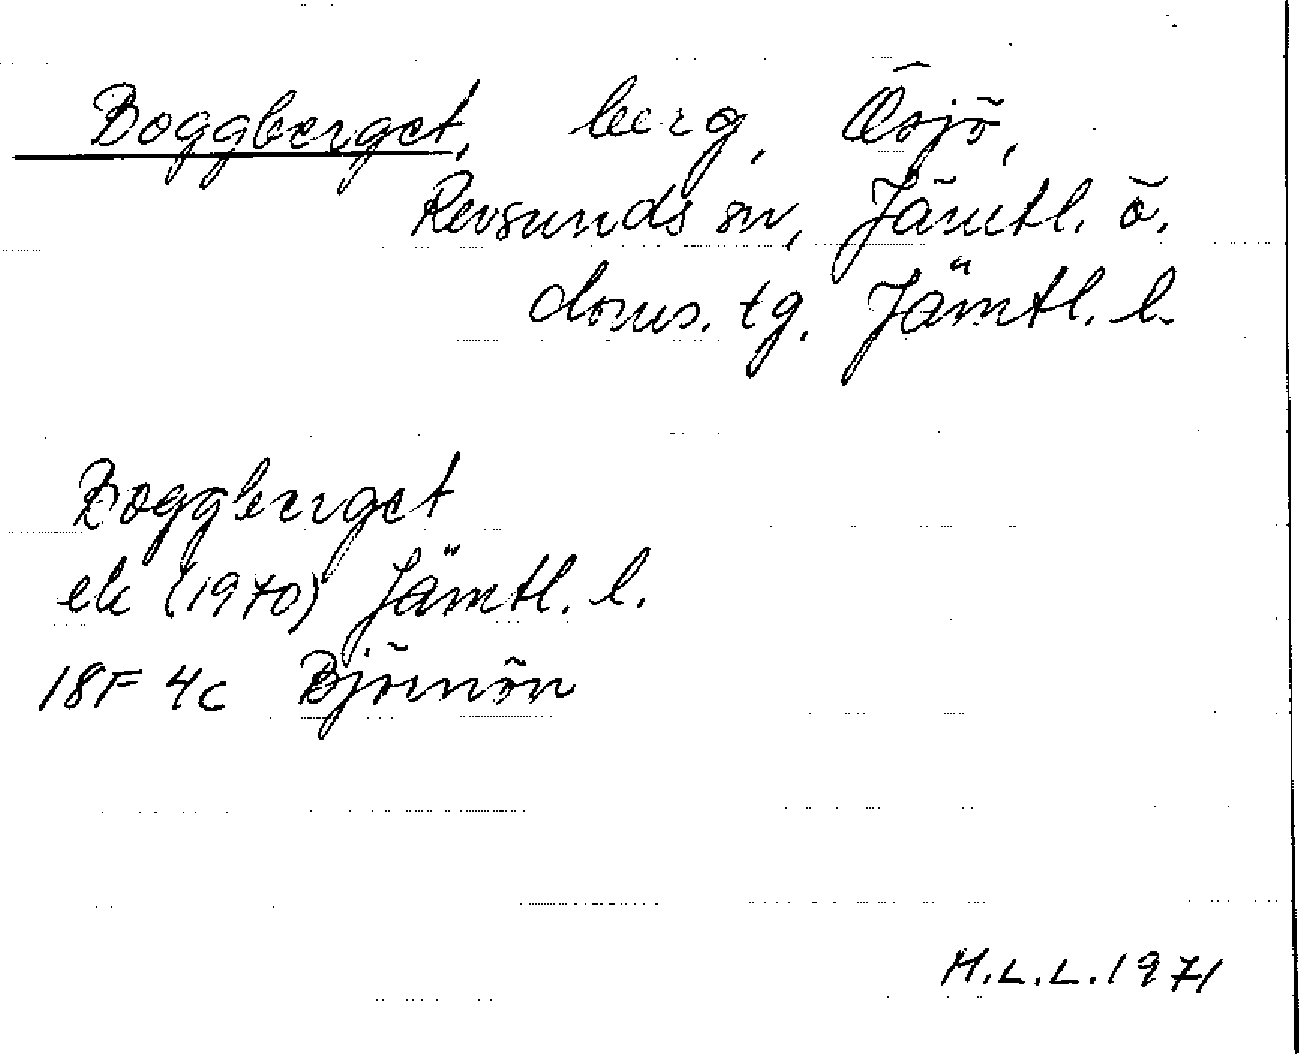 Boggberget, berg, Ösjö,
Revsunds sn, Jämtl. ö.
doms. tg. Jämtl. l.
Boggberget
ek (1970) Jämtl. l.
18F 4c Björnön
H.L.L. 1971